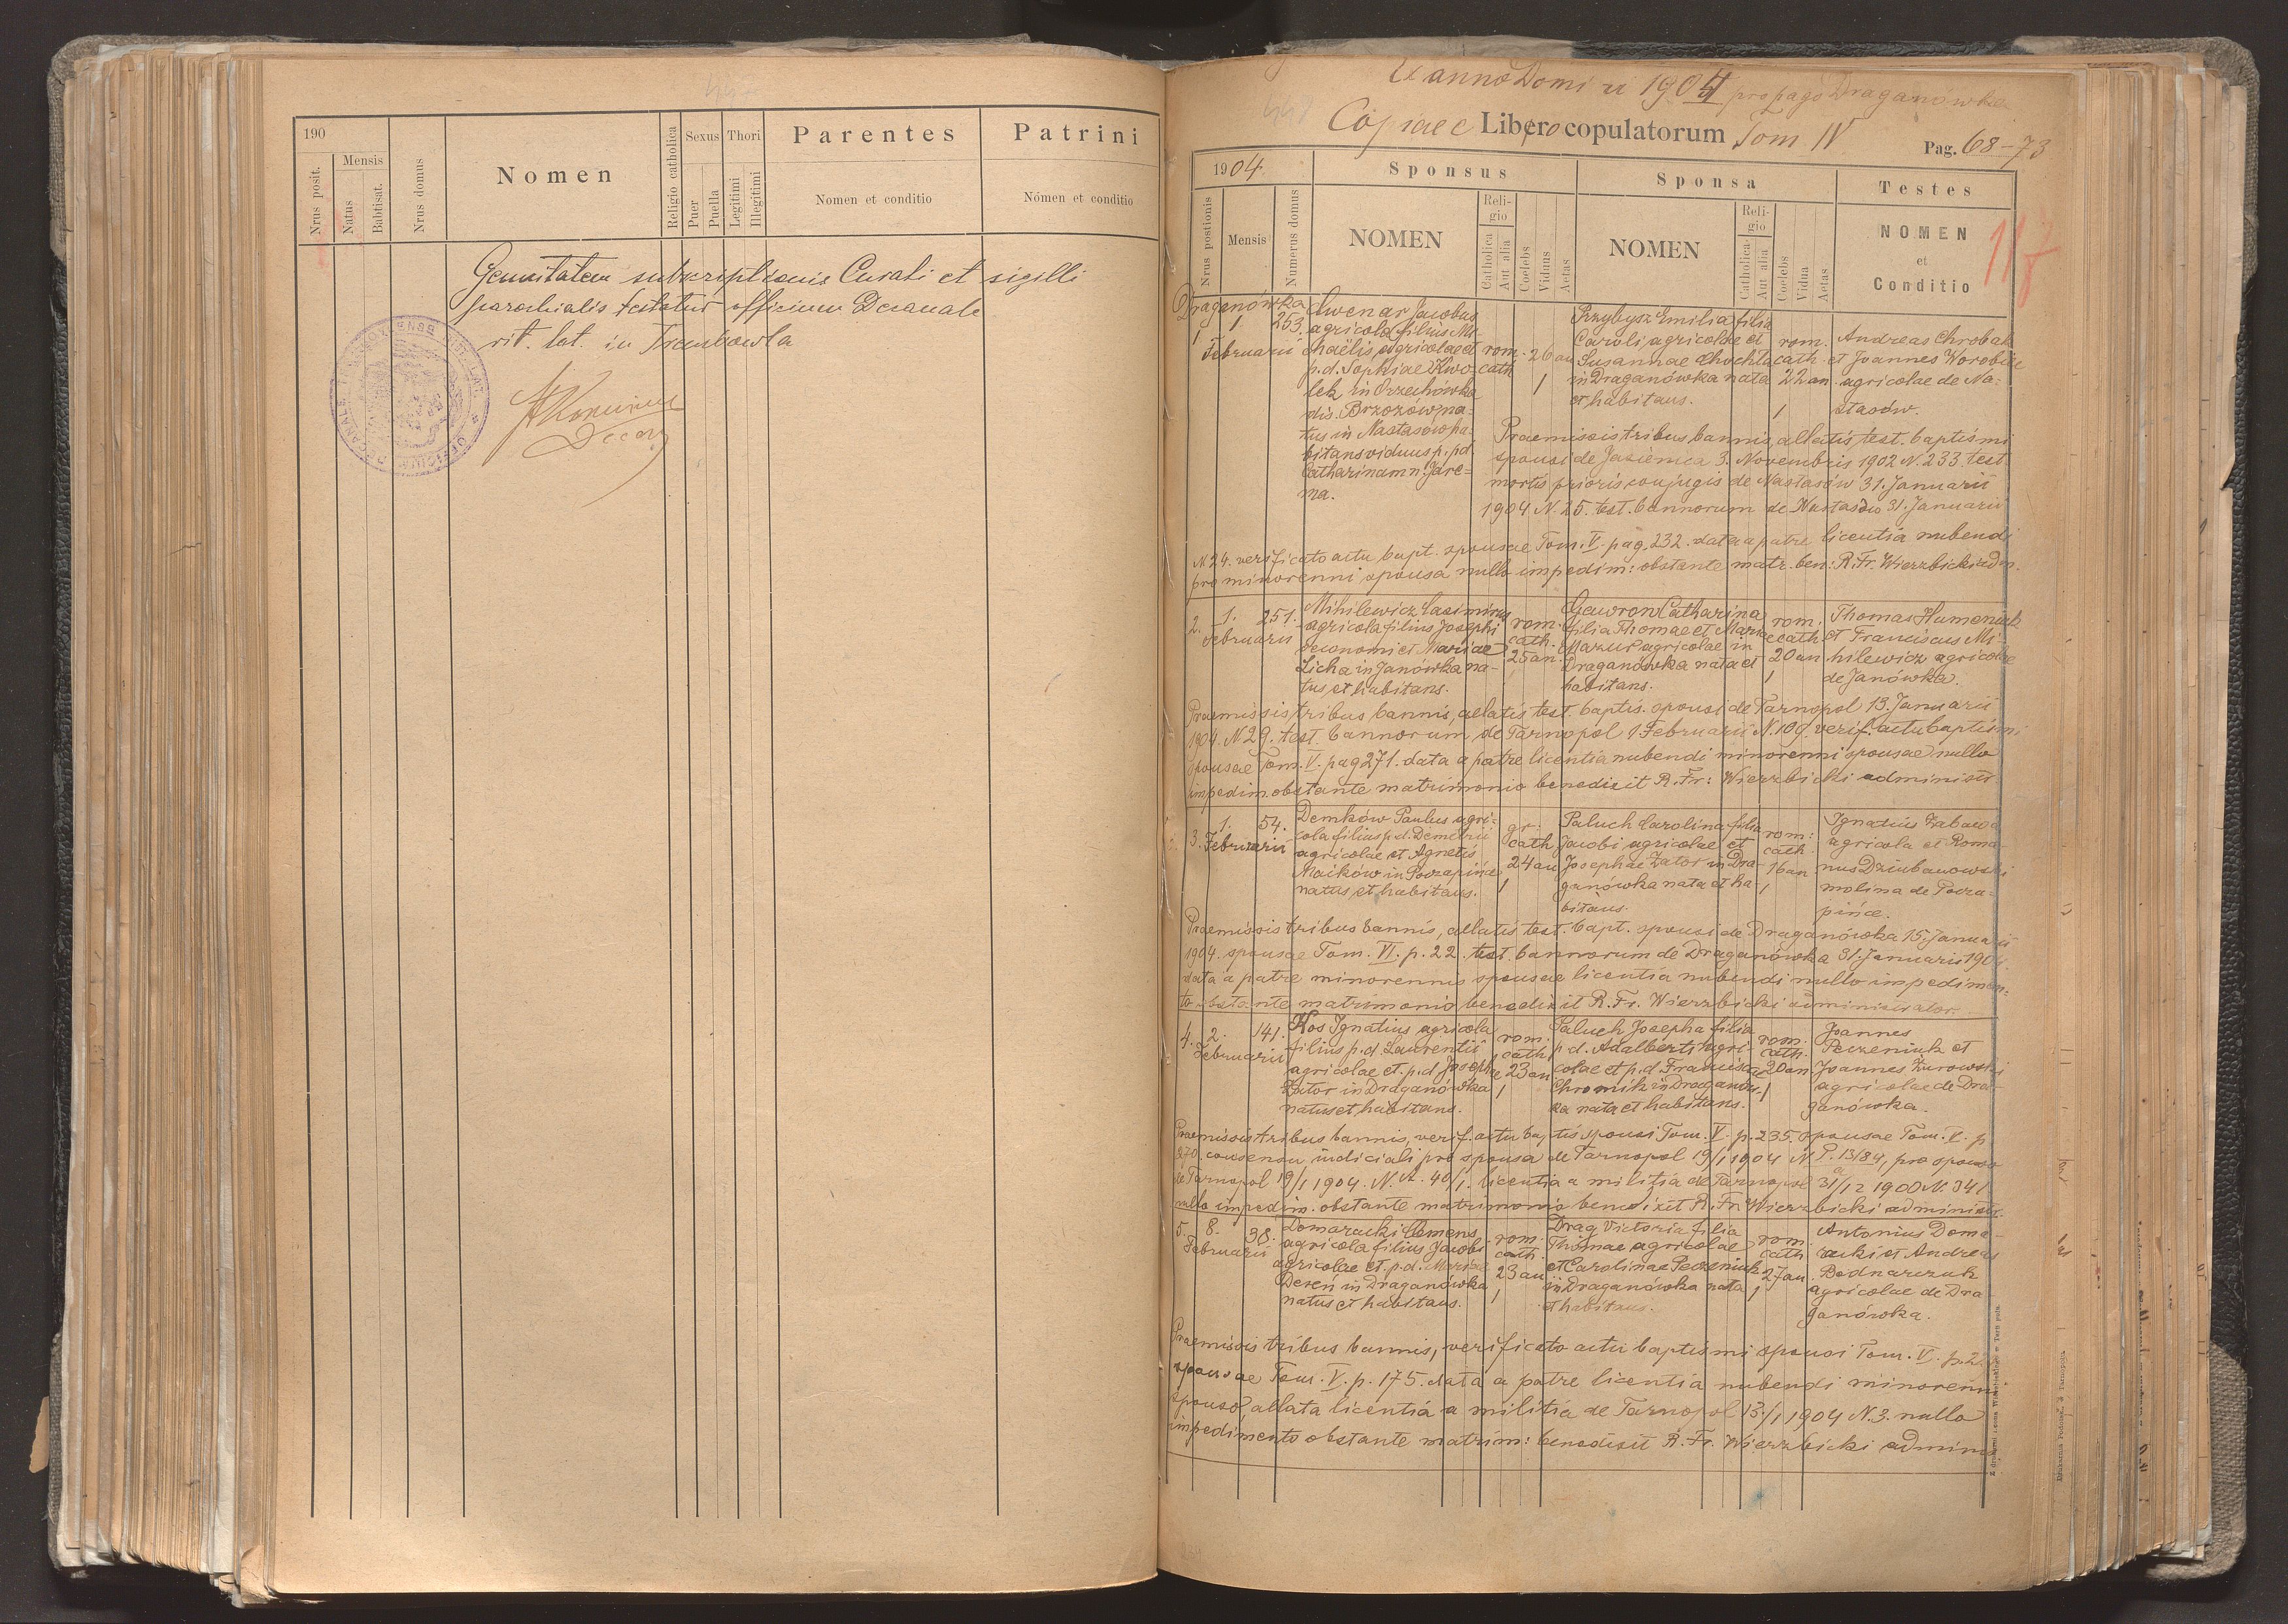 190
Nrus posit.
Mensis
Natus
Babtisat.
Nrus domus
Nomen
Religio catholica
Sexus
Puer
Puella
Thori
Legitimi
Illegitimi
Parentes
Nomen et conditio
Patrini
Nomen et conditio
Genuitatem subscriptionis Curati et sigilli
parochialis testatur officium Decanale
rit. lat. in Trembowla
Decan
Ex anno Domini 1904 pro pago Draganówka
Copia e Libro copulatorum Tom IV
Pag. 68-73
117
1904
Nrus positionis
Mensis
Numerus domus
Sponsus
NOMEN
Religio
Catholica
Aut alia
Coelebs
Viduus
Aetas
Sponsa
NOMEN
Religio
Catholica
Aut alia
Coelebs
Vidua
Aetas
Testes
NOMEN
et
Conditio
Draganówka
1 1 Februarii 253.
Jacobus
agricola filius Mi-
chaëlis, agricolae et
p.d. Sophiae Kwo-
lek in Orzechówka
dis. Brzozów na-
tus in Nastasów ha-
bitans viduus p. pd.
Catharinam n. Jare-
ma.
rom. cath 26 an 1
Przybysz Emilia filia
Caroli agricolae et
Susannae Chochta
in Draganówka nata
et habitans.
rom. cath. 22 an. 1
Andreas Chrobak
et Joannes Worobiec
agricolae de Na-
stasów.
Praemissis tribus bannis, allatis test. baptismi
sponsi de Jasienica 3. Novembris 1902 N. 233. test.
mortis prioris conjugis de Nastasów 31. Januarii
1904 N. 25. test. bannorum de Nastasów 31. Januarii
N 24. verificato actu bapt. sponsae Tom. V. pag. 232. data a patre licentia nubendi
pro minorenni sponsa nullo impedim: obstante matr. ben: R. Fr. Wierzbicki adm.
2. 1. Februarii 251.
Mihilewicz Casimirus
agricola filius Josephi
oeconomi et Mariae
Licha in Janówka na-
tus et habitans.
rom. cath. 25 an.
Gawron Catharina
filia Thomae et Mariae
Mazur agricolae in
Draganówka nata et
habitans.
rom. cath 20 an 1
Thomas Humeniuk
et Franciscus Mi-
hilewicz agricolae
de Janówka.
Praemissis tribus bannis, allatis test. baptis. sponsi de Tarnopol 13. Januarii
1904. N 29. test. bannorum de Tarnopol 1 Februarii N. 109. verif. actu baptismi
sponsae Tom. V. pag 271. data a patre licentia nubendi minorenni sponsae nullo
impedim. obstante matrimonio benedixit R. Fr: Wierzbicki administr
3. 1. Februarii 54.
Demków Paulus agri-
cola filius p.d. Demetrii
agricolae et Agnetis
Maików in Poczapińce
natus et habitans.
gr. cath 24 an 1
Paluch Carolina filia
Jacobi agricolae et
Josephae Zator in Dra-
ganówka nata et ha-
bitans.
rom: cath. 16 an 1
Ignatius Zabawa
agricola et Roma-
nus Dziubanowski
molina de Pocza-
pińce.
Praemissis tribus bannis, allatis test. bapt. sponsi de Draganówka 15. Januarii
1904. sponsae Tom. VI. p. 22. test. bannorum de Draganówka 31. Januarii 1904.
data a patre minorennis sponsae licentia nubendi nullo impedimen-
to obstante matrimonio benedixit R. Fr. Wierzbicki administrator.
4. 2. Februarii 141.
Kos Ignatius agricola
filius p.d. Laurentii
agricolae et p.d Josephae
Zator in Draganówka
natus et habitans.
rom. cath 23 an 1
Paluch Josepha filia
p d. Adalberti agri-
colae et p.d Franciscae
Chromik in Draganów-
ka nata et habitans.
rom. cath. 20 an. 1
Joannes
Peczeniuk et
Joannes Żurowski
agricolae de Dra-
ganówka.
Praemissis tribus bannis, verif. actu baptis sponsi Tom. V. p. 235. sponsae Tom. V. p
270. consensu iudiciali pro sponsa de Tarnopol 19/1 1904 N P. 13/84, pro sponso
de Tarnopol 19/1 1904. N. A. 40/1. licentia a militia de Tarnopol 31/12 1900 N. 341
nullo impedim. obstante matrimonio benedixit R. Fr Wierzbicki administr.
5. 8. Februarii 38.
Domaracki Clemens
agricola filius Jacobi
agricolae et p.d. Mariae
Dereń in Draganówka
natus et habitans.
rom. cath. 23 an 1
Drąg Victoria filia
Thomae agricolae
et Carolinae Peczeniuk
in Draganówka nata
et habitans.
rom. cath 27 an 1
Antonius Doma-
racki et Andreas
Bednarczuk
agricolae de Dra
ganówka.
Praemissis tribus bannis, verificato actu baptismi sponsi Tom. V. p. 2
sponsae Tom. V. p. 175. data a patre licentia nubendi minorenni
sponso, allata licentia a militia de Tarnopol 13/1 1904 N. 3. nullo
impedimento obstante matrim: benedixit R. Fr. Wierzbicki adminis